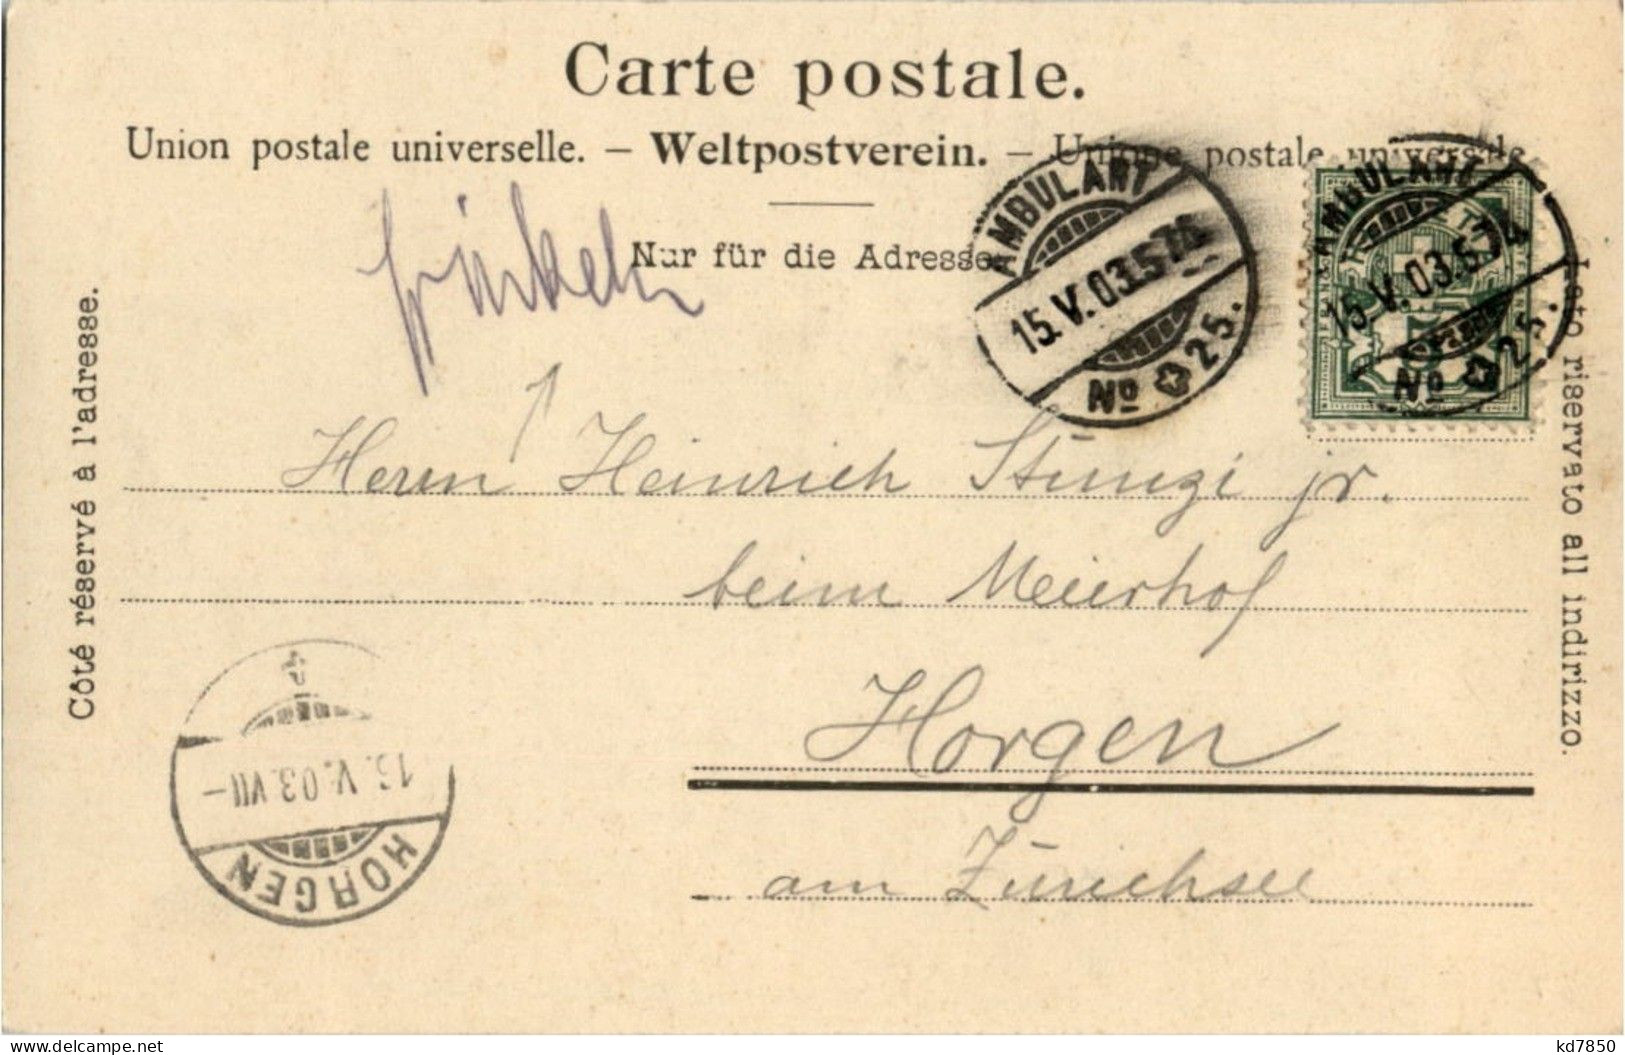 Carte postale.
Union postale universelle. – Weltpostverein. – Unione postale universale
Nur für die Adresse
AMBULANT
15.V.03.
No 25.
AMBULANT
15.V.03.
No 25.
Côté réservé à l'adresse.
Lato riservato all indirizzo.
Herrn Heinrich Stünzi jr.
beim Meierhof
Horgen
am Zürichsee
V.03.VII–
HORGEN
kd7850